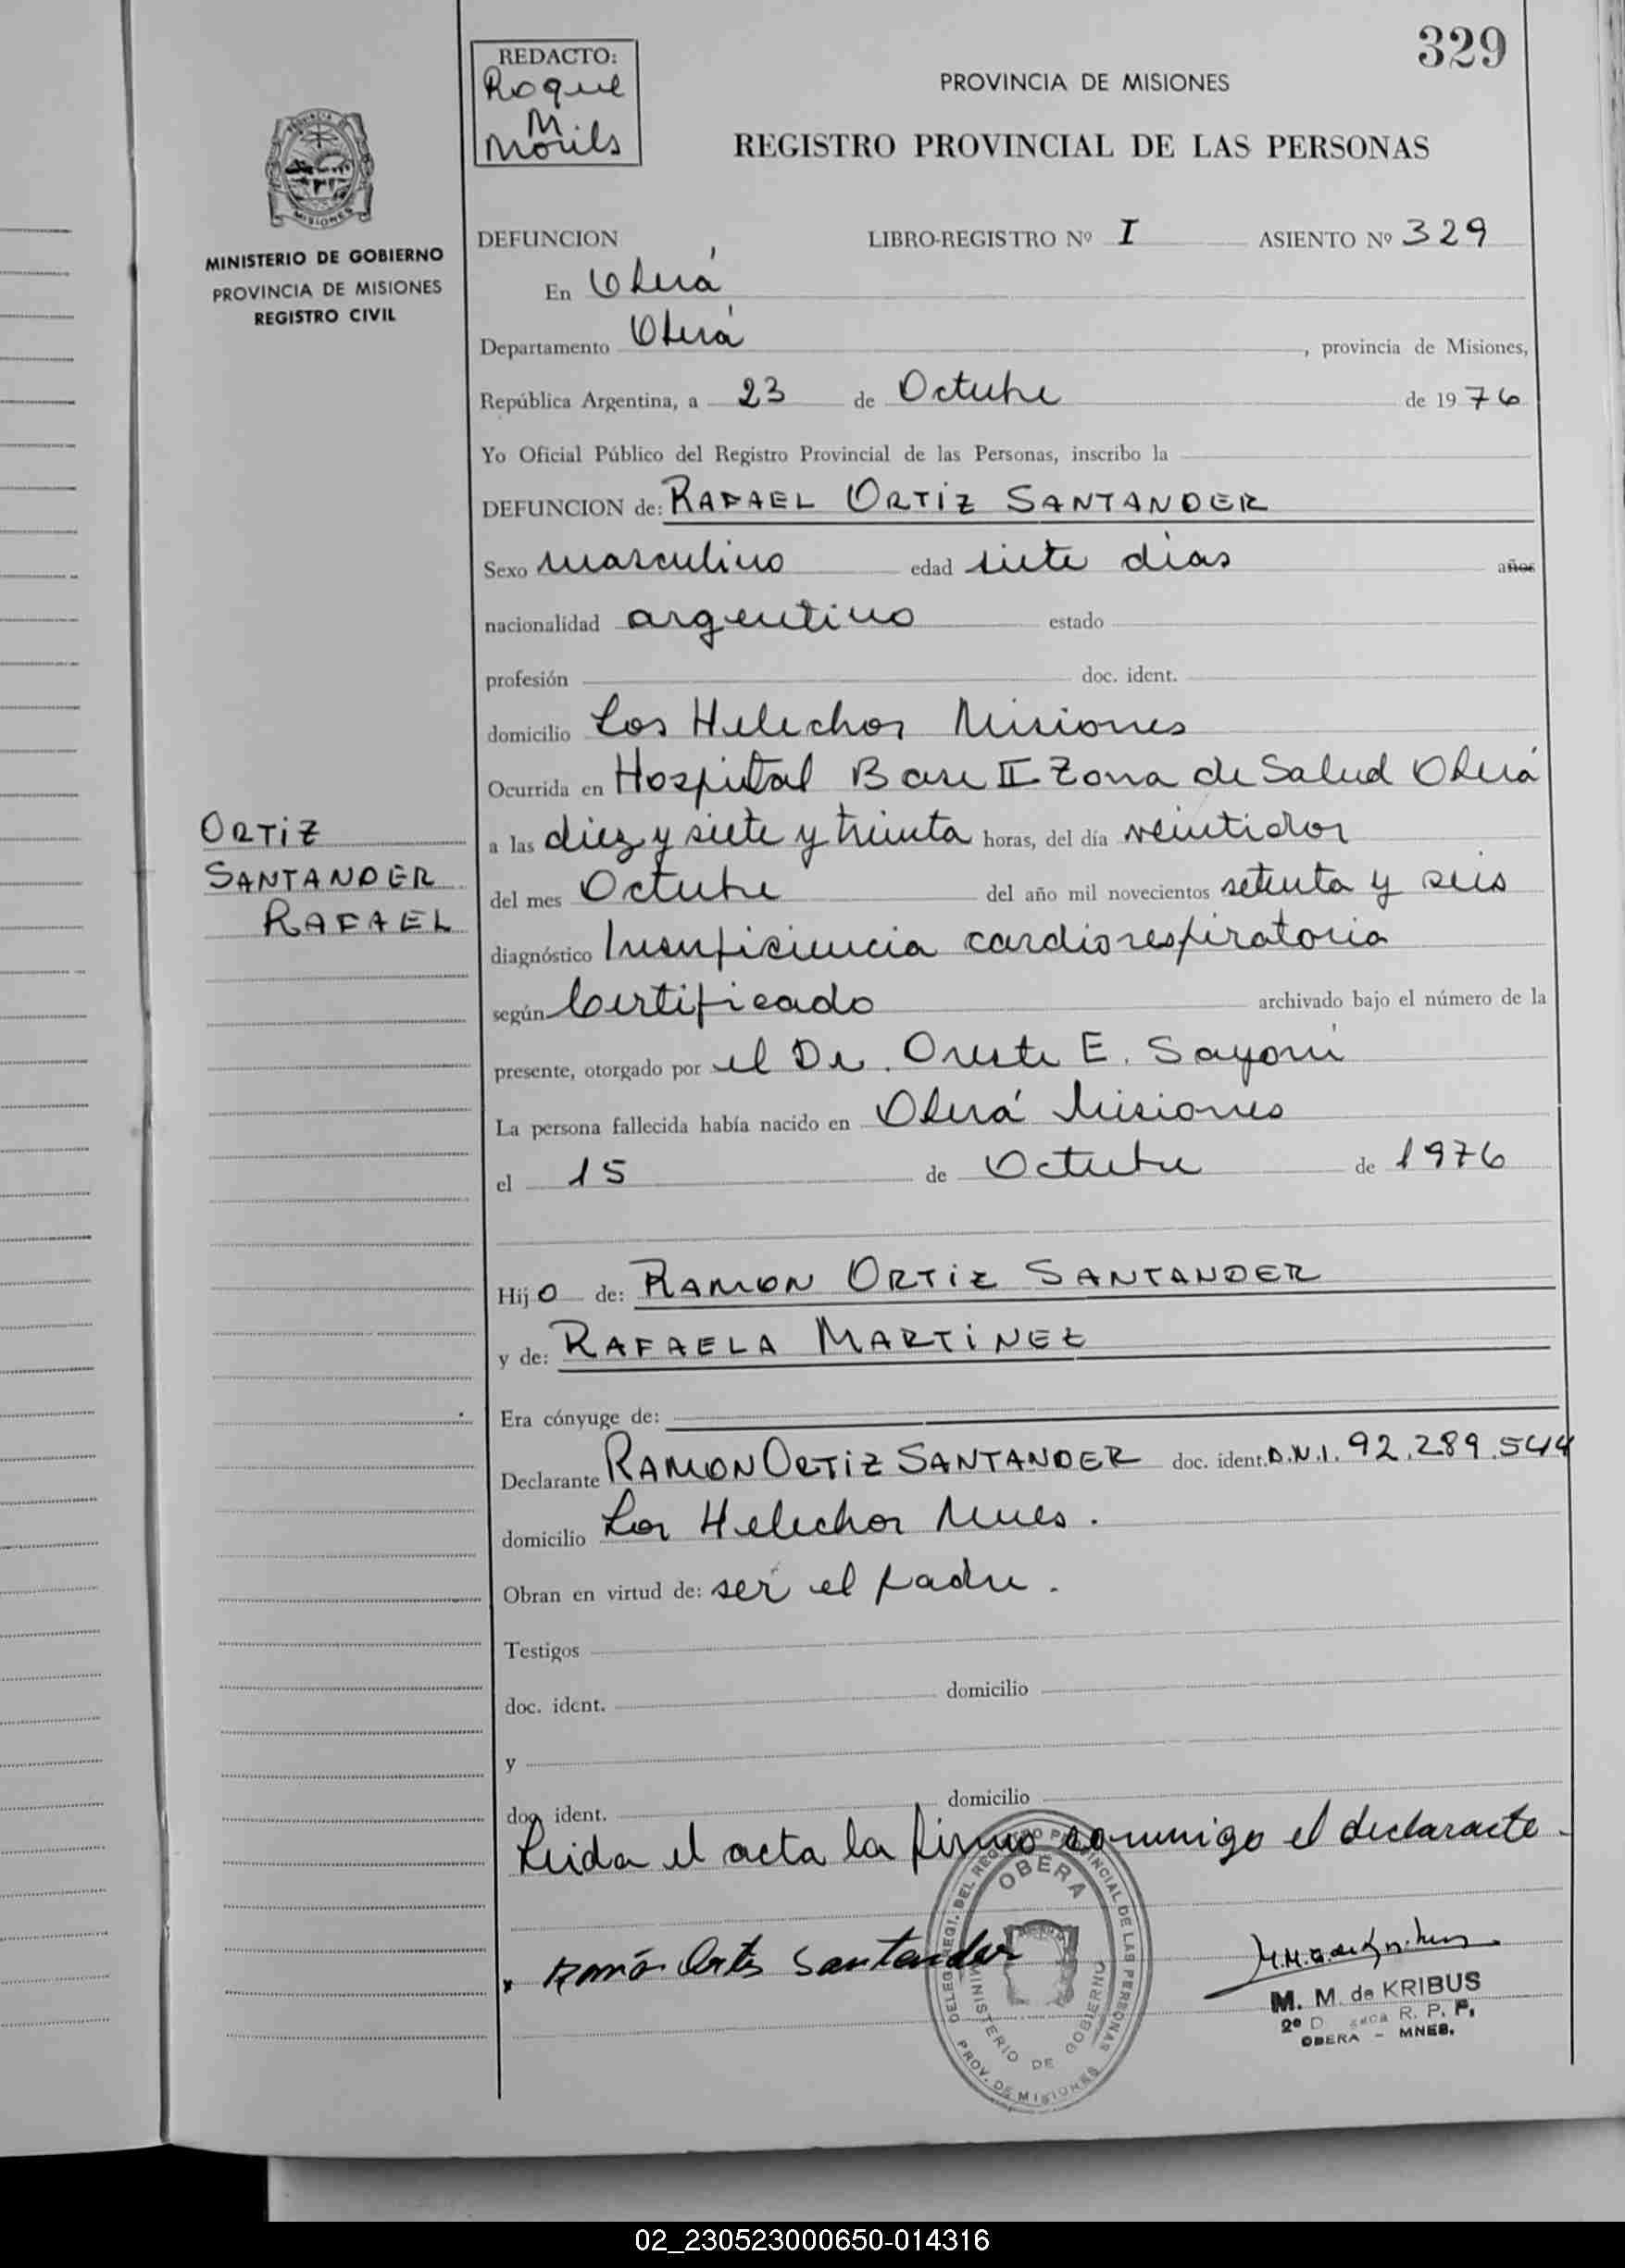 329
REDACTO:
Roque
M.
Morils
PROVINCIA DE MISIONES
REGISTRO PROVINCIAL DE LAS PERSONAS
MISIONES
MINISTERIO DE GOBIERNO
PROVINCIA DE MISIONES
REGISTRO CIVIL
DEFUNCION LIBRO-REGISTRO Nº I ASIENTO Nº 329
En Oberá
Departamento Oberá, provincia de Misiones,
República Argentina, a 23 de Octubre de 1976
Yo Oficial Público del Registro Provincial de las Personas, inscribo la
DEFUNCION de: RAFAEL ORTIZ SANTANDER
Sexo masculino edad siete días años
nacionalidad argentino estado
profesión doc. ident.
domicilio Los Helechos Misiones
Ocurrida en Hospital Base II Zona de Salud Oberá
a las diez y siete y treinta horas, del día veintidos
del mes Octubre del año mil novecientos setenta y seis
diagnóstico Insuficiencia cardiorespiratoria
según Certificado archivado bajo el número de la
presente, otorgado por el Dr. Oreste E. 
La persona fallecida había nacido en Oberá Misiones
el 15 de Octubre de 1976
Hijo de: RAMON ORTIZ SANTANDER
y de: RAFAELA MARTINEZ
Era cónyuge de:
Declarante RAMON ORTIZ SANTANDER doc. ident. D.N.I. 92.289.544
domicilio Los Helechos Mnes.
Obran en virtud de: ser el padre.
Testigos
doc. ident. domicilio
y
doc. ident. domicilio
Leida el acta la firma conmigo el declarante.
Ramón Ortiz Santander
ORTIZ
SANTANDER
RAFAEL
DELEG. REGI. DEL REGISTRO PROVINCIAL DE LAS PERSONAS
OBERA
MINISTERIO DE GOBIERNO
PROV. DE MISIONES
M. M. de KRIBUS
2º D R. P. P.
OBERA - MNES.
02_230523000650-014316